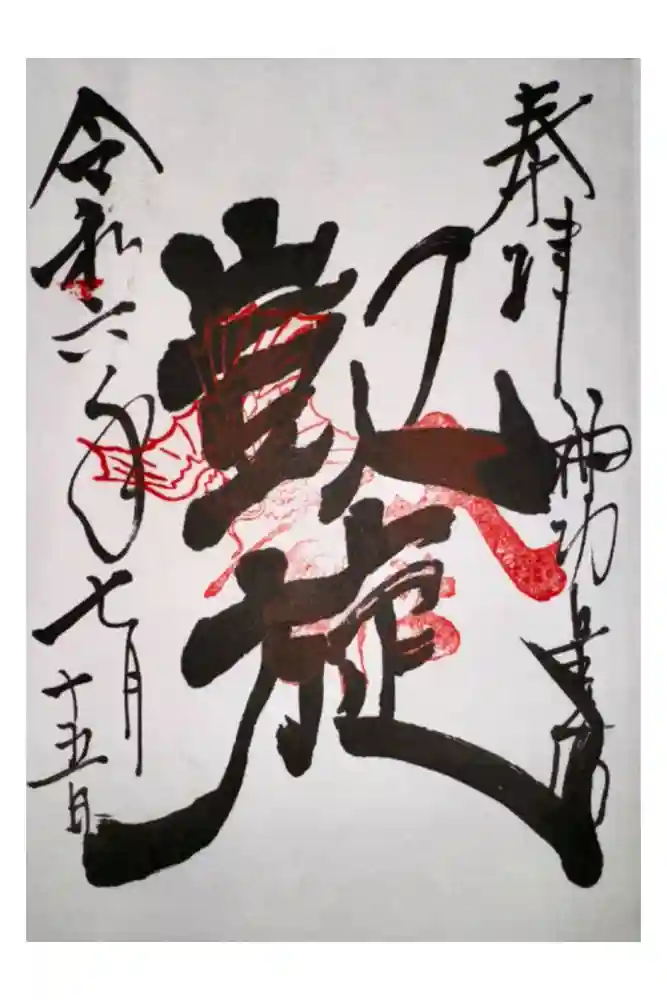 奉拝 神功皇后
凱旋
令和六年七月十五日